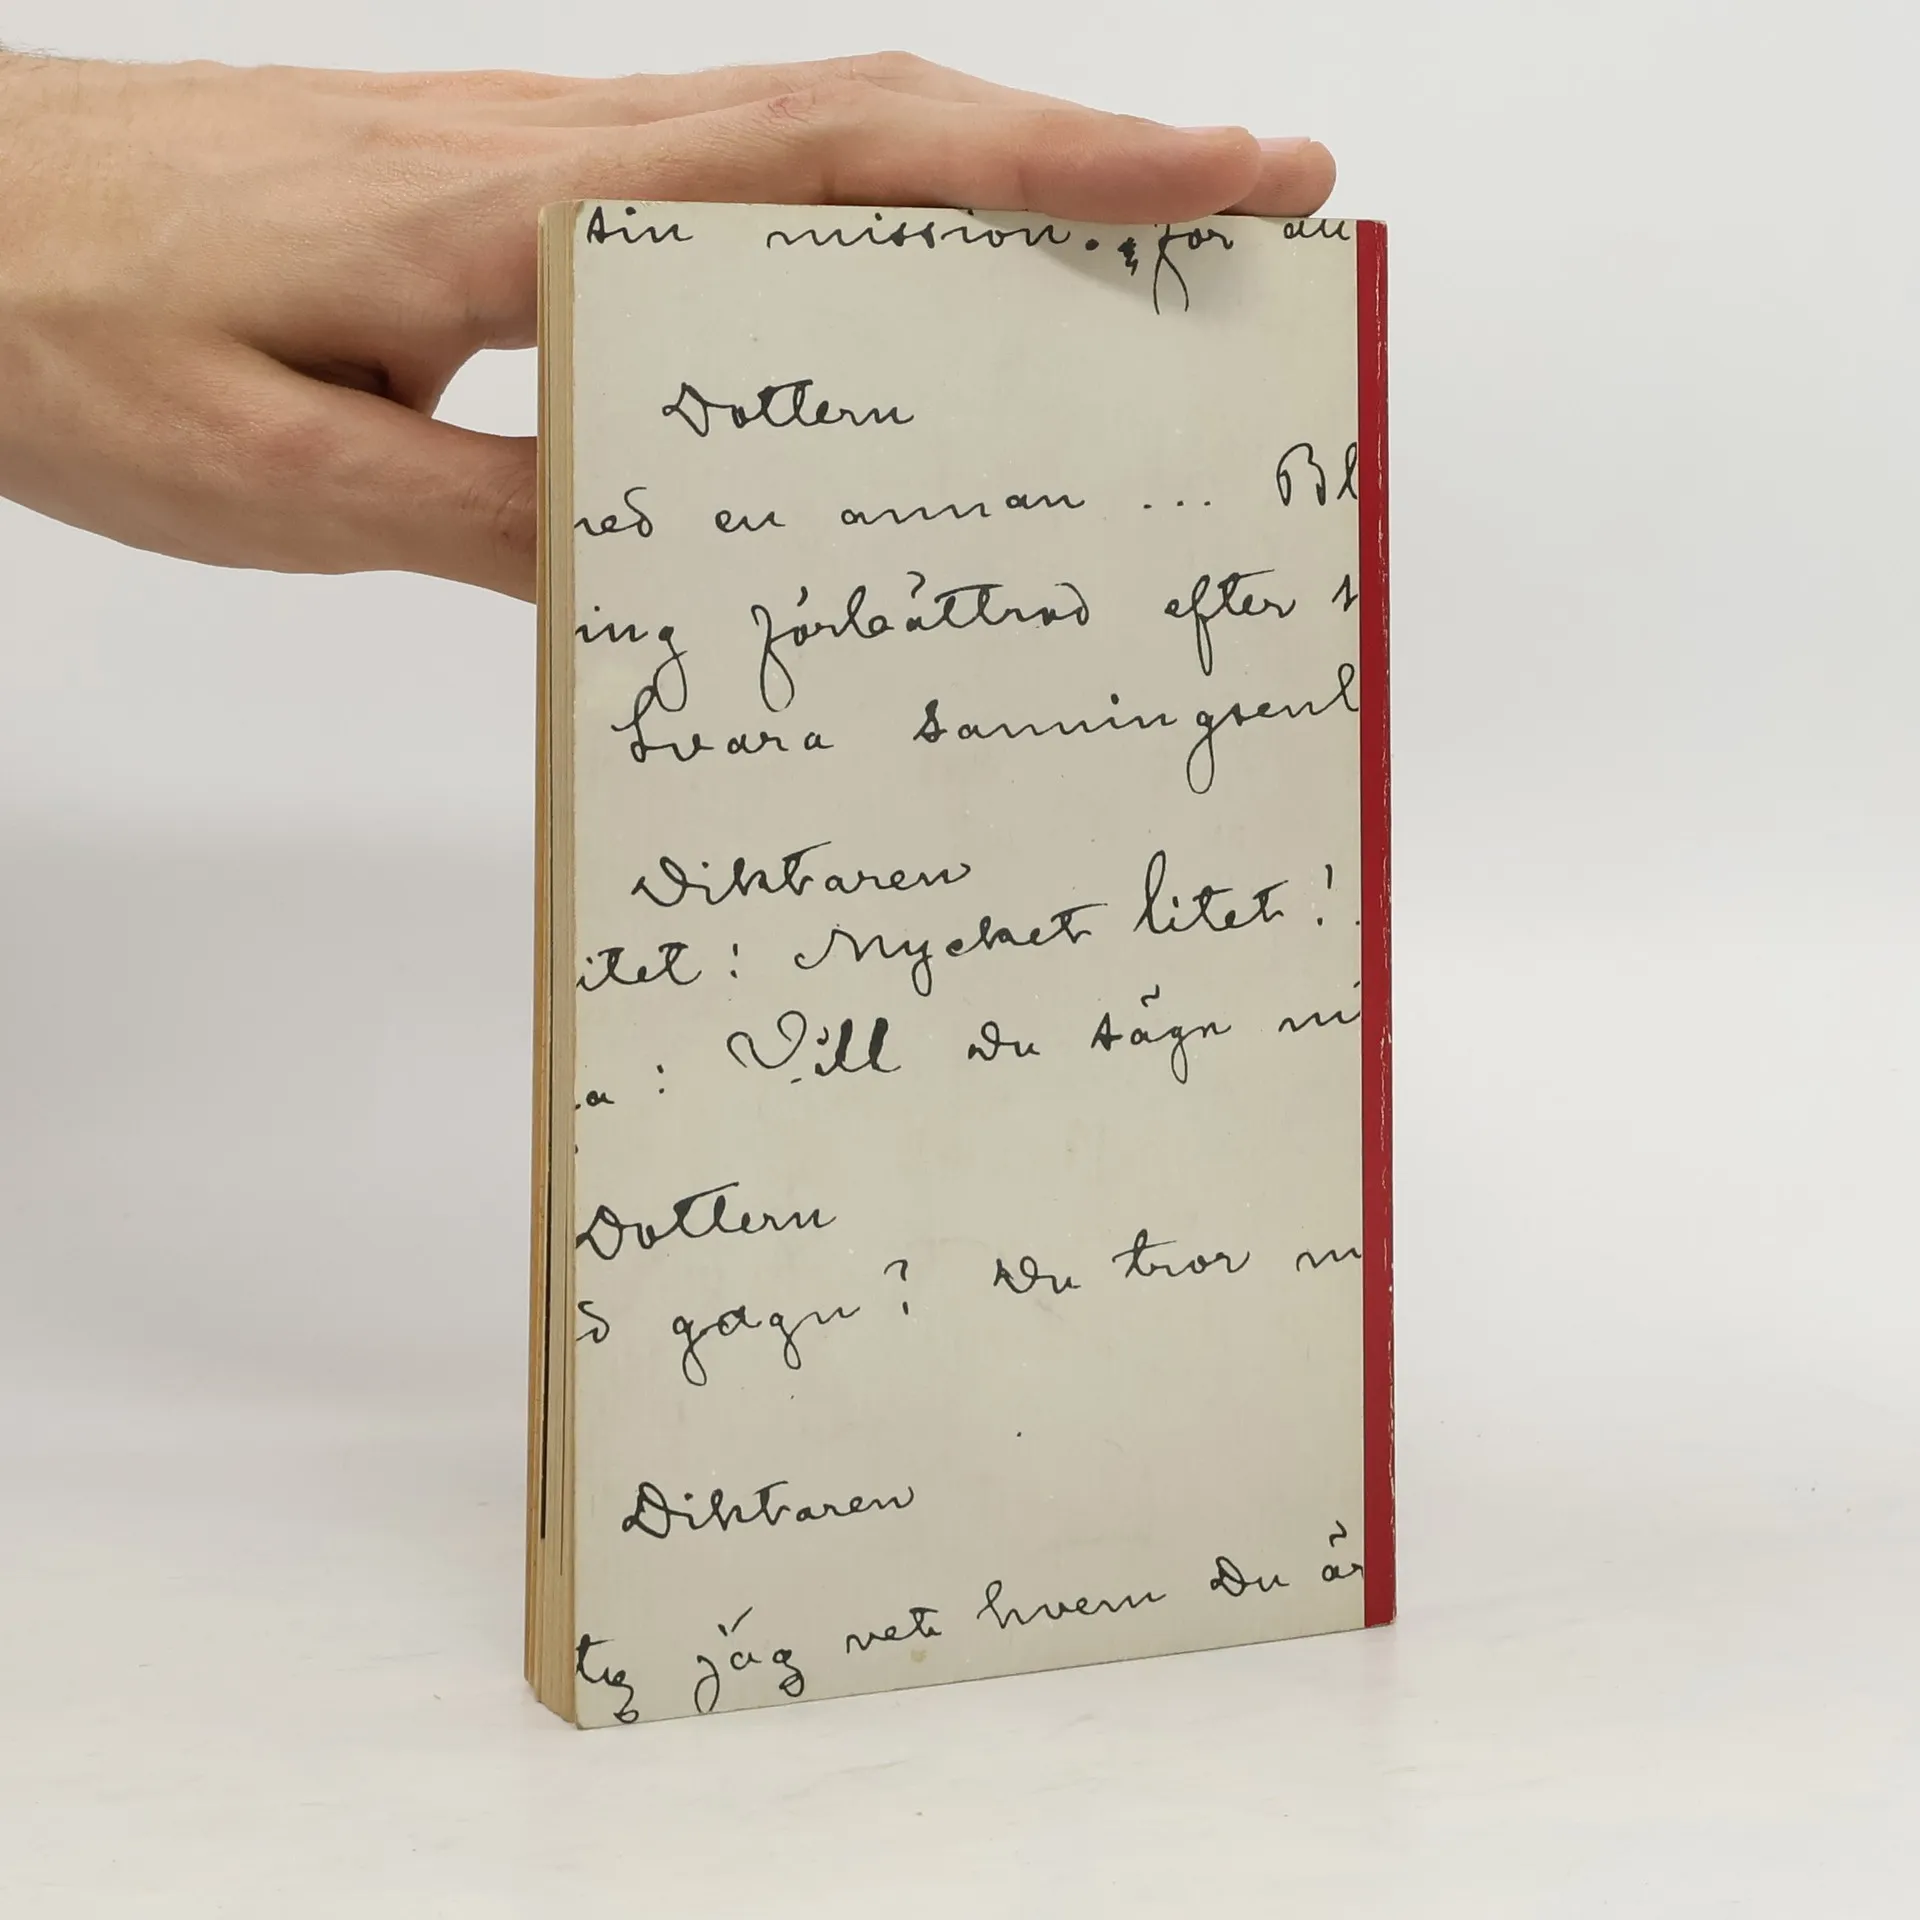 sin mission. för att
Dottern
med en annan ... Bl
ing förbättrad efter
Svara sanningsenl
Diktaren
itet! Mycket litet!
a: Vill Du säga mi
Dottern
d gagn? Du tror m
Diktaren
tig jag vet hvem Du är